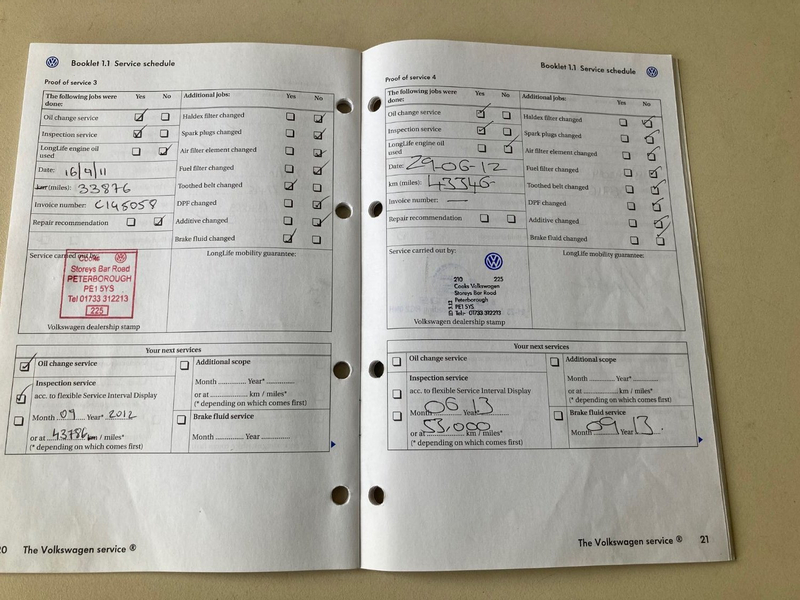 Booklet 1.1 Service schedule
Proof of service 3
The following jobs were done: Yes No Additional jobs: Yes No
Oil change service Haldex filter changed
Inspection service Spark plugs changed
LongLife engine oil used Air filter element changed
Date: 16/9/11 Fuel filter changed
km (miles): 33876 Toothed belt changed
Invoice number: C145058 DPF changed
Repair recommendation Additive changed
Brake fluid changed
Service carried out by: LongLife mobility guarantee:
Cooks
Storeys Bar Road
PETERBOROUGH
PE1 5YS
Tel 01733 312213
225
Volkswagen dealership stamp
Your next services
Oil change service Additional scope
Inspection service Month Year*
acc. to flexible Service Interval Display or at km / miles*
(* depending on which comes first)
Month 09 Year* 2012 Brake fluid service
or at 43786 km / miles* Month Year
(* depending on which comes first)
20 The Volkswagen service ®
Booklet 1.1 Service schedule
Proof of service 4
The following jobs were done: Yes No Additional jobs: Yes No
Oil change service Haldex filter changed
Inspection service Spark plugs changed
LongLife engine oil used Air filter element changed
Date: 29-06-12 Fuel filter changed
km (miles): 43346 Toothed belt changed
Invoice number: — DPF changed
Repair recommendation Additive changed
Brake fluid changed
Service carried out by: LongLife mobility guarantee:
210 225
Cooks Volkswagen
Storeys Bar Road
Peterborough
PE1 5YS
Tel:- 01733 312213
Volkswagen dealership stamp
Your next services
Oil change service Additional scope
Inspection service Month Year*
acc. to flexible Service Interval Display or at km / miles*
(* depending on which comes first)
Month 06 Year* 13 Brake fluid service
or at 53,000 km / miles* Month 09 Year 13.
(* depending on which comes first)
The Volkswagen service ® 21